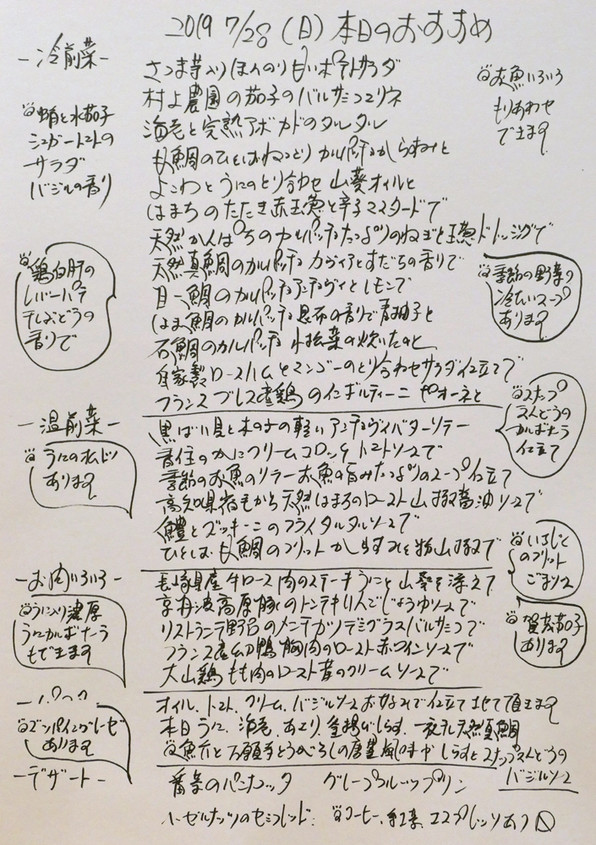 2019 7/28 (日) 本日のおすすめ
-冷前菜-
さつま芋入りほんのり甘いポテトサラダ
村上農園の茄子のバルサミコマリネ
海老と完熟アボカドのタルタル
鯛のひとはねっとりカルパッチョからすみと
よこわとうにのとり合わせ 山葵オイルと
はまちのたたき赤玉葱と辛子マスタードで
天然かんぱちのカルパッチョたっぷりのねぎと玉葱ドレッシングで
天然真鯛のカルパッチョ カヴィアとすだちの香りで
目一鯛のカルパッチョアンチョヴィとレモンで
はま鯛のカルパッチョ 昆布の香りで青柚子と
石鯛のカルパッチョ 小松菜の炊いたのと
自家製ロースハムとマンゴーのとり合わせサラダ仕立てで
フランス ブレス産鶏のインボルティーニ ペオーネと
蛸と水茄子
シュガートマトの
サラダ
バジルの香り
お魚いろいろ
もりあわせ
できます
鶏白肝の
レバーパテ
干しぶどうの
香りで
季節の野菜の
冷たいスープ
あります
-温前菜-
黒ばい貝と木の子の軽いアンチョヴィバターソテー
香住のかにクリームコロッケ トマトソースで
季節のお魚のソテーお魚の旨みたっぷりのスープ仕立て
高知県宿毛から天然はまちのロースト山椒醤油ソースで
鱧とズッキーニのフライタルタルソースで
鯛のフリット からすみと粉山椒で
うにのムース
あります
スナップ
えんどうの
かるぼなーら
仕立て
いちじくの
フリット
ごまソース
賀茂茄子
あります
-お肉いろいろ-
長崎県産牛ロース肉のステーキうにと山葵を添えて
京丹波高原豚のトンテキりんごじょうゆソースで
リストランテ野呂のメンチカツデミグラスバルサミコで
フランス産幼鴨胸肉のロースト赤ワインソースで
大山鶏もも肉のロースト茸のクリームソースで
うに入り濃厚
うにかるぼなーら
もできます
オイル、トマト、クリーム、バジルソースお好みで仕立てさせて頂きます
本日うに、海老、あさり、釜揚げしらす、一夜干し天然真鯛
しらすとスナップえんどうの
バジルソース
あります
-デザート-
番茶のパンナコッタ グレープフルーツプリン
ヘーゼルナッツのセミフレッド コーヒー、紅茶、エスプレッソあり